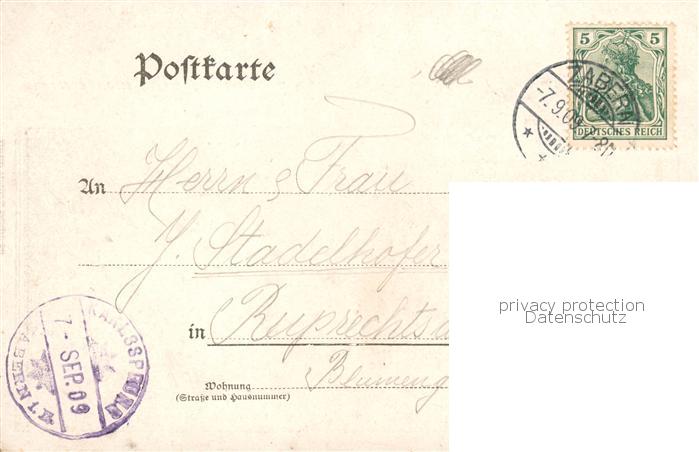 Postkarte
5 5
DEUTSCHES REICH
ZABERN
-7.9.09.7-8N
An Herrn & Frau
J. Stadelhofer
in Ruprechtsa
Wohnung Blumeng
(Straße und Hausnummer)
KARLSSPRUNG
7- SEP. 09
ZABERN i. E.
privacy protection
Datenschutz